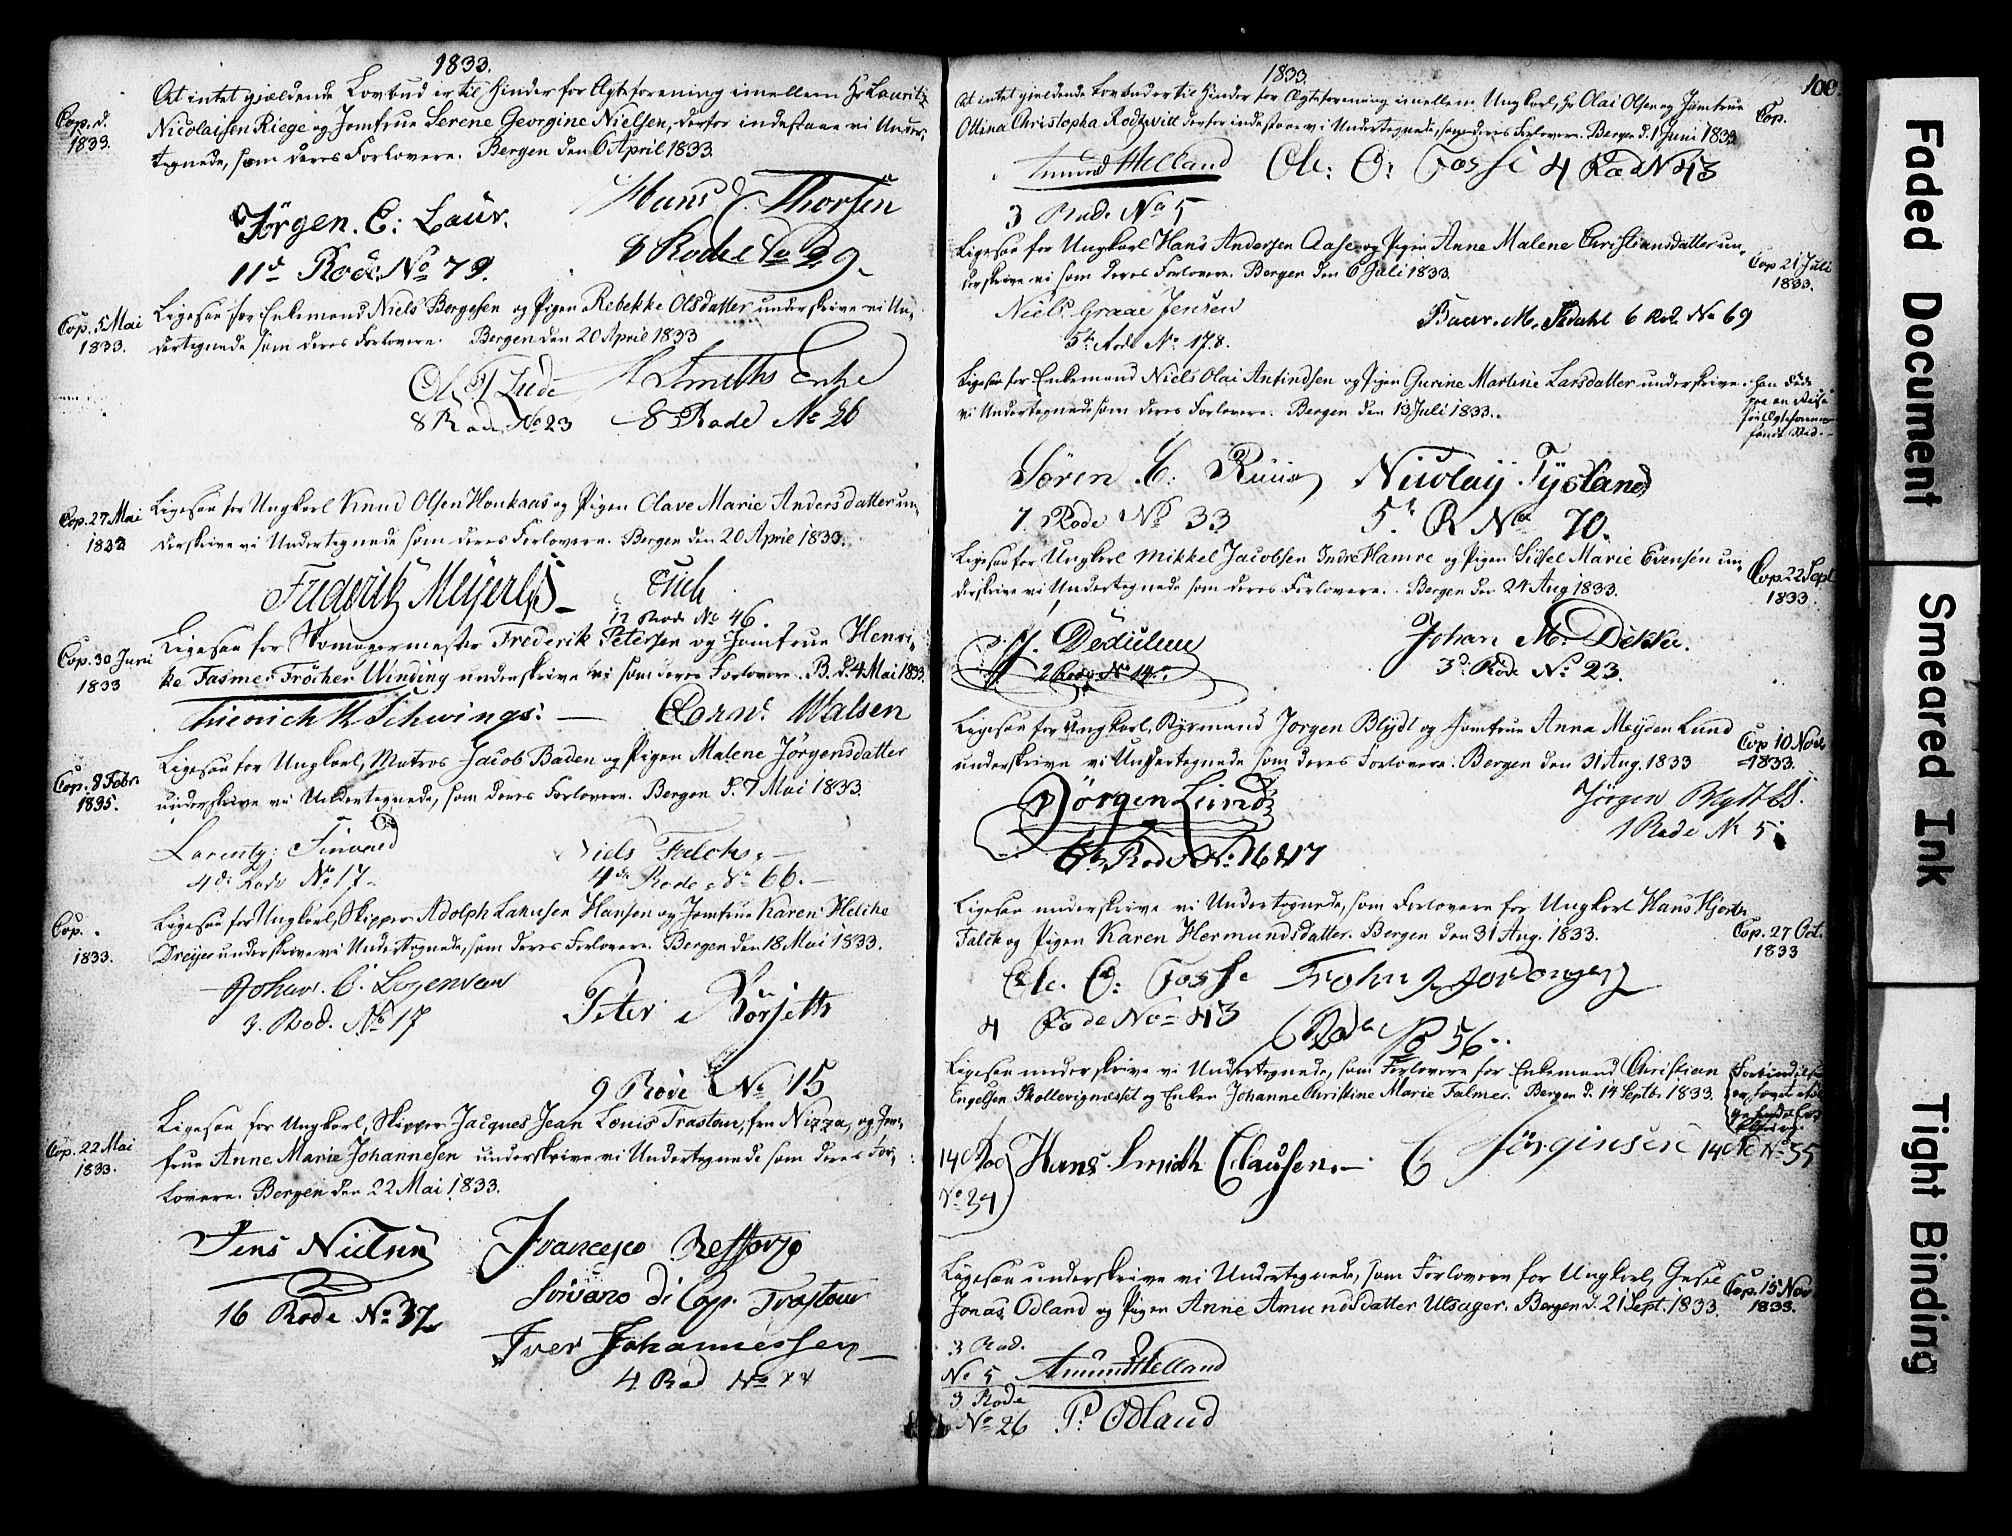 1833.
At intet gjældende Lovbud er til Hinder for Ægteforening imellem Hr Lauritz
Cop. d.
1833.
Nicolaisen Riege og Jomfrue Serene Georgine Nielsen, derfor indestaae vi Under-
tegnede, som deres Forlovere. Bergen den 6 April 1833.
Jörgen. C: Laur.
Hans J. Thorsen
11te Rode No 79.
8 Rode No 29.
Cop. 5 Mai
1833.
Ligesaa for Enkemand Niels Børgesen og Pigen Rebekke Olsdatter underskrive vi Un-
dertegnede som deres Forlovere. Bergen den 20 April 1833
Smiths Enke
8 Rode No 23
8 Rode No 26
Cop. 27 Mai
1833
Ligesaa for Ungkarl Knud Olsen Honkaas og Pigen Olave Marie Andersdatter un-
derskrive vi Undertegnede som deres Forlovere. Bergen den 20 April 1833.
Friderik Meyer
12 Rode No 46.
Cop. 30 Juni
1833
Ligesaa for Skomagermester Frederik Petersen og Jomfrue Henri-
ke Fasmer Fröcher Winding underskrive vi som deres Forlovere. B. d. 4 Mai 1833.
Hienrich M Schwings:
Corn: Walsen
Cop. 8 Febr.
1835.
Ligesaa for Ungkarl, Matros Jacob Baden og Pigen Malene Jørgensdatter
underskrive vi Undertegnede, som deres Forlovere. Bergen d. 7 Mai 1833.
Niels Falck
4de Rode No 17.
4de Rode No 66.
Cop.
1833.
Ligesaa for Ungkarl, Skipper Adolph Hansen og Jomfrue Karen
Dreijer underskrive vi Undertegnede, som deres Forlovere. Bergen den 18 Mai 1833.
Johan. C.
Peter Körseth
3. Rod. No 17
9 Rode No 15
Cop. 22 Mai
1833.
Ligesaa for Ungkarl, Skipper Jacques Jean Louis Trastour, fra Nizza, og Jom-
frue Anne Marie Johannesen underskrive vi Undertegnede som deres For-
lovere. Bergen den 22 Mai 1833.
Jens Nielsen
Francesco
Scrivano di Cap. Trastour
16 Rode No 37
Iver Johannessen
4 Rod No 44
1833.
100.
At intet gjeldende Lovbud er til Hinder for Ægteforening imellem Ungkarl, Hr Olai Olsen og Jomfrue
Cop.
Ottina Christopha Rodtzvitt derfor indestaae vi Undertegnede, som deres Forlovere. Bergen d. 1 Juni 1833
Amund Helland
Ole: O: Fosse 4 Rode N 43
3 Rode No 5
Ligesaa for Ungkarl Hans Andersen Aase og Pigen Anne Malene Christiansdatter un-
Cop 21 Juli
1833.
derskrive vi som deres Forlovere. Bergen den 6 Juli 1833.
Niels Graae Jensen
Baar. M. Sedahl 6 Rode No 69
5te Rode No 178.
Ligesaa for Enkemand Niels Olai Anfindsen og Pigen Gurine Martine Larsdatter underskrive
vi Undertegnede som deres Forlovere. Bergen den 13 Juli 1833.
Søren C. Ruus
Nicolay Tysland
7. Rode No 33
5te R No 70.
Ligesaa for Ungkarl Mikkel Jacobsen Indre Hamre og Pigen Sidsel Marie Evensen un-
Cop. 22 Sept
1833.
derskrive vi Undertegnede som deres Forlovere. Bergen den 24 Aug 1833.
Johan M. Dekke.
2 Rode No 14.
3d. Rode No 23.
Ligesaa for Ungkarl, Styrmand Jørgen Blydt og Jomfrue Anna Meyden Lund
Cop 10 Novb
1833.
underskrive vi Undertegnede som deres Forlovere. Bergen den 31 Aug. 1833
Jørgen Lund
Jørgen Blydt
1 Rode No 5
6te Rode No. 16 & 17
Ligesaa underskrive vi Undertegnede, som Forlovere for Ungkarl Hans Hjorth
Falck og Pigen Karen Hermundsdatter. Bergen den 31 Aug. 1833.
Cop. 27 Oct.
1833
Ole. O: Fosse
4 Rode No 43
6 Rode No 56.
Ligesaa underskrive vi Undertegnede, som Forlovere for Enkemand Christian
Engelsen Skollevignesset og Enken Johanne Christine Marie Falmer. Bergen d. 14 Septbr 1833.
14 Rode
No 34
Hans Smidth Clausen.
C Jörginsen 14 Rode No 35
Ligesaa underskrive vi Undertegnede, som Forlovere for Ungkarl,
Cop. 15 Nov
1833.
Jonas Odland og Pigen Anne Amundsdatter Ulsager. Bergen d. 21 Sept. 1833.
3 Rod.
No 5
Amund Helland
3 Rode
No 26
P. Odland
Faded Document
Smeared Ink
Tight Binding